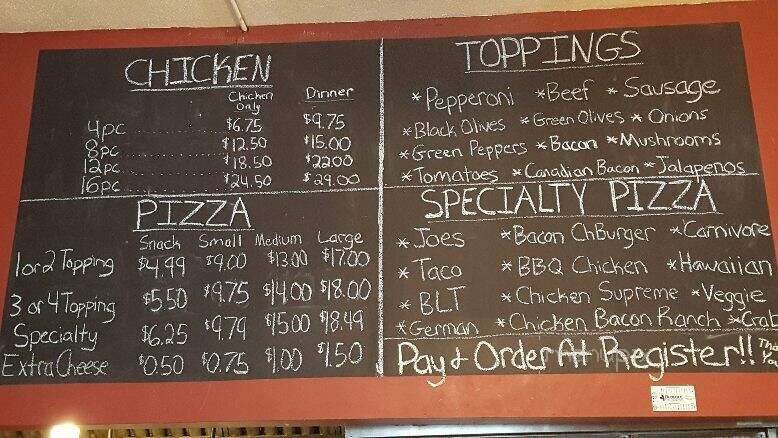 CHICKEN
Chicken Only Dinner
4pc $6.75 $9.75
8pc $12.50 $15.00
12pc $18.50 $22.00
16pc $24.50 $29.00
PIZZA
Snack Small Medium Large
1 or 2 Topping $4.99 $9.00 $13.00 $17.00
3 or 4 Topping $5.50 $9.75 $14.00 $18.00
Specialty $6.25 $9.79 $15.00 $18.49
Extra Cheese $0.50 $0.75 $1.00 $1.50
TOPPINGS
* Pepperoni * Beef * Sausage
* Black Olives * Green Olives * Onions
* Green Peppers * Bacon * Mushrooms
* Tomatoes * Canadian Bacon * Jalapenos
SPECIALTY PIZZA
* Joes * Bacon ChBurger * Carnivore
* Taco * BBQ Chicken * Hawaiian
* BLT * Chicken Supreme * Veggie
* German * Chicken Bacon Ranch * Crab
Pay & Order At Register!!